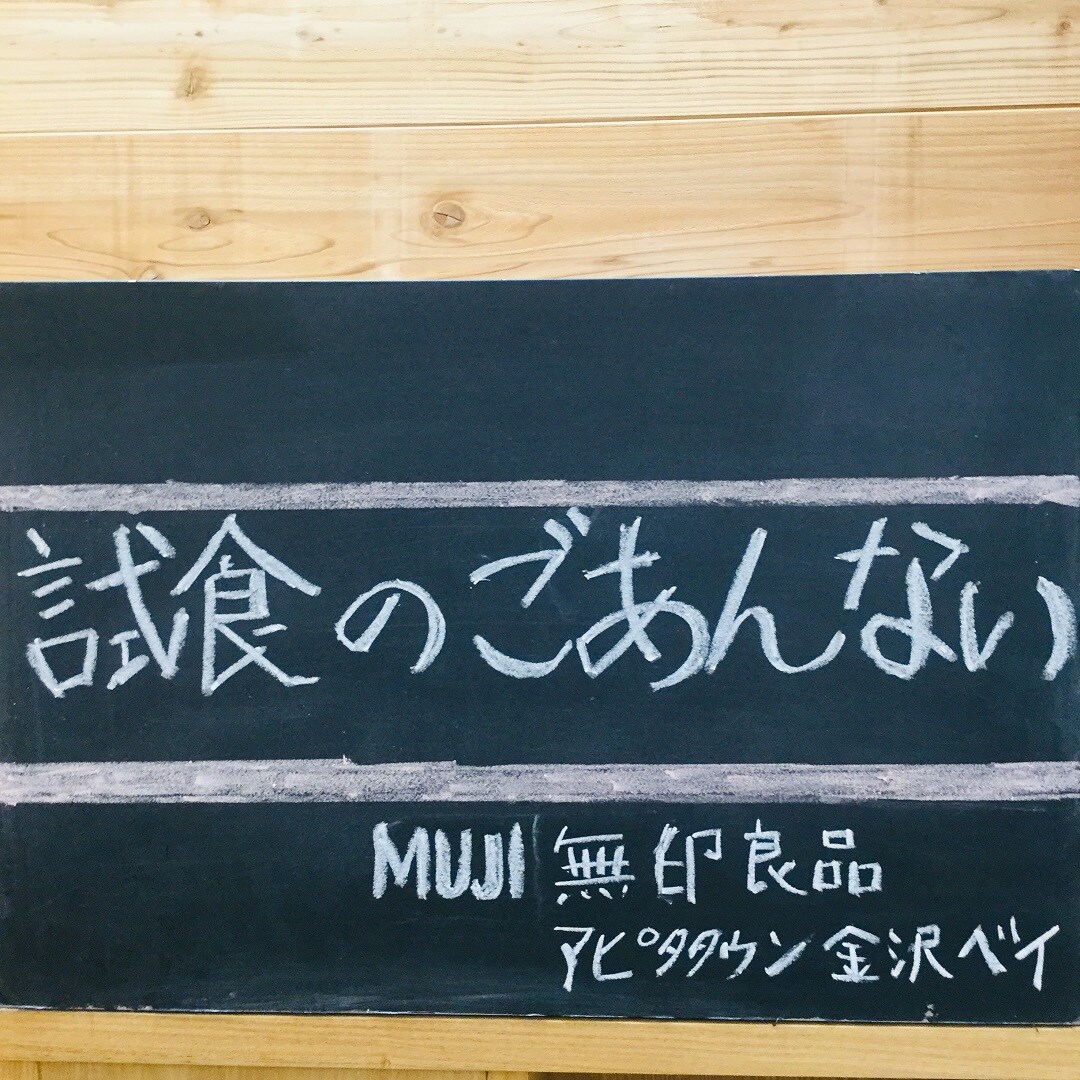 試食のごあんない
MUJI 無印良品
アピタタウン金沢ベイ